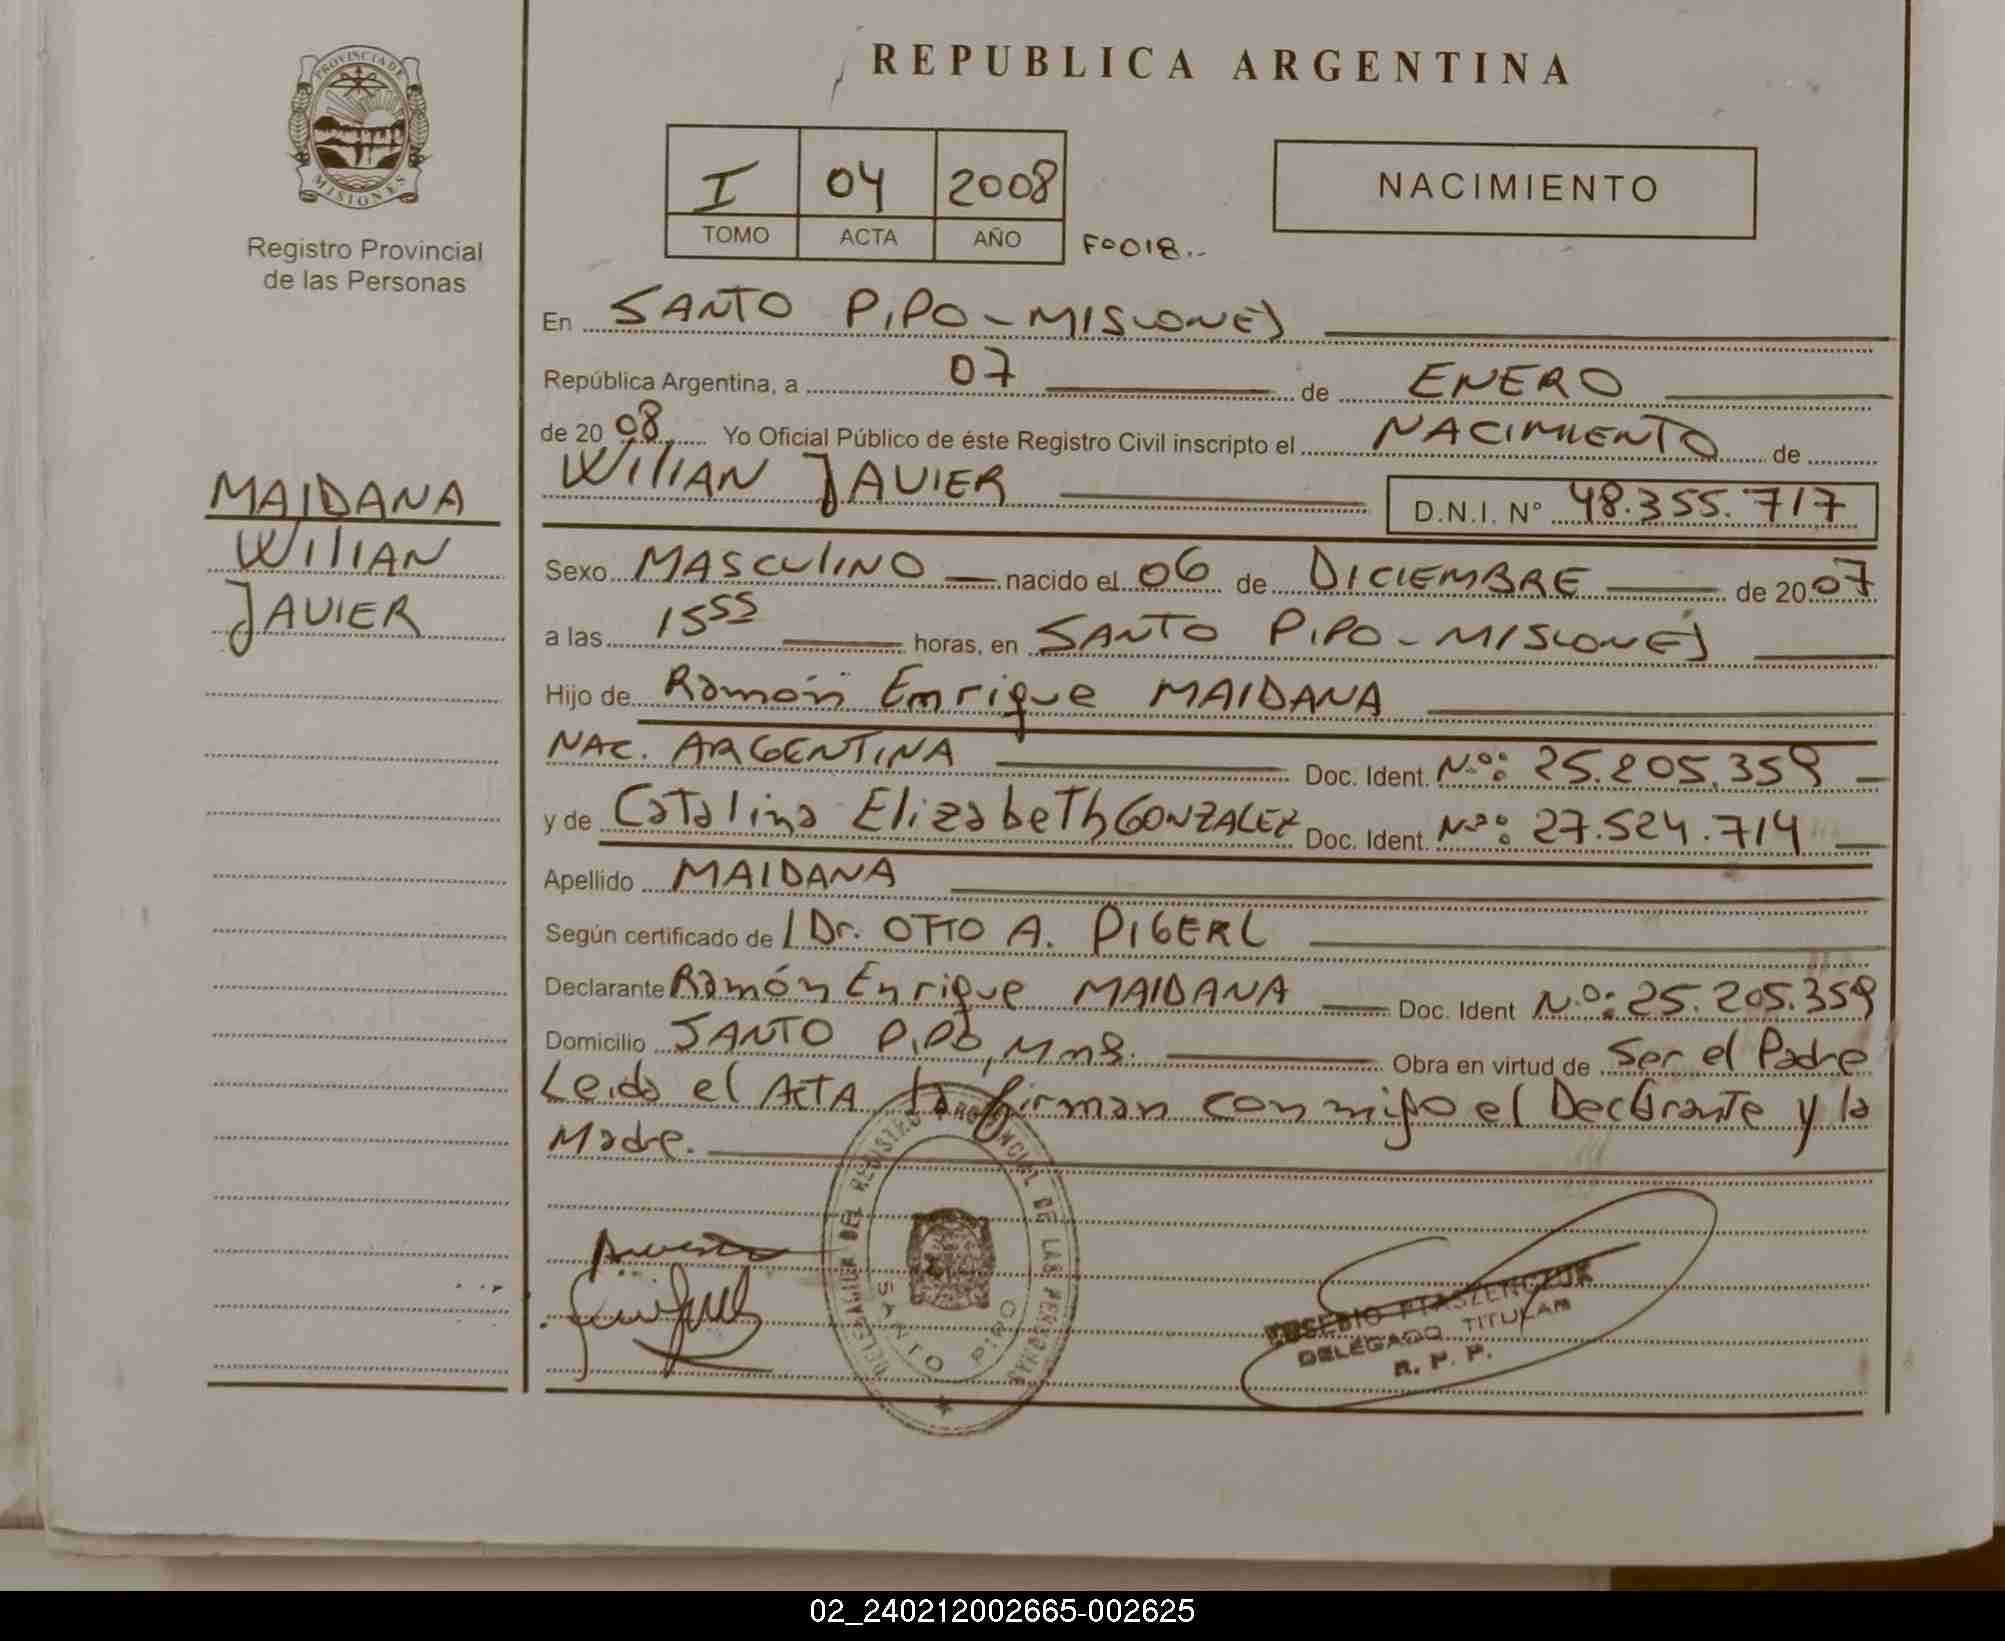 PROVINCIA DE
MISIONES
Registro Provincial
de las Personas
MAIDANA
WILIAN
JAVIER
REPUBLICA ARGENTINA
I 04 2008
TOMO ACTA AÑO
Fº018.-
NACIMIENTO
En SANTO PIPO - MISIONES
República Argentina, a 07 de ENERO
de 2008 Yo Oficial Público de éste Registro Civil inscripto el NACIMIENTO de
WILIAN JAVIER D.N.I. Nº 48.355.717
Sexo MASCULINO nacido el 06 de DICIEMBRE de 2007
a las 15 55 horas, en SANTO PIPO - MISIONES
Hijo de Ramón Enrique MAIDANA
NAC. ARGENTINA Doc. Ident. Nº: 25.205.359
y de Catalina Elizabeth GONZALEZ Doc. Ident. Nº: 27.524.714
Apellido MAIDANA
Según certificado de Dr. OTTO A. PIGERL
Declarante Ramón Enrique MAIDANA Doc. Ident Nº: 25.205.359
Domicilio SANTO PIPO, Mnes. Obra en virtud de Ser el Padre
Leido el ACTA la firman conmigo el Declarante y la
Madre.
DELEGACION DEL REGISTRO PROVINCIAL DE LAS PERSONAS
SANTO PIPO
EUSEBIO PTASZENCZUK
DELEGADO TITULAR
R. P. P.
02_240212002665-002625